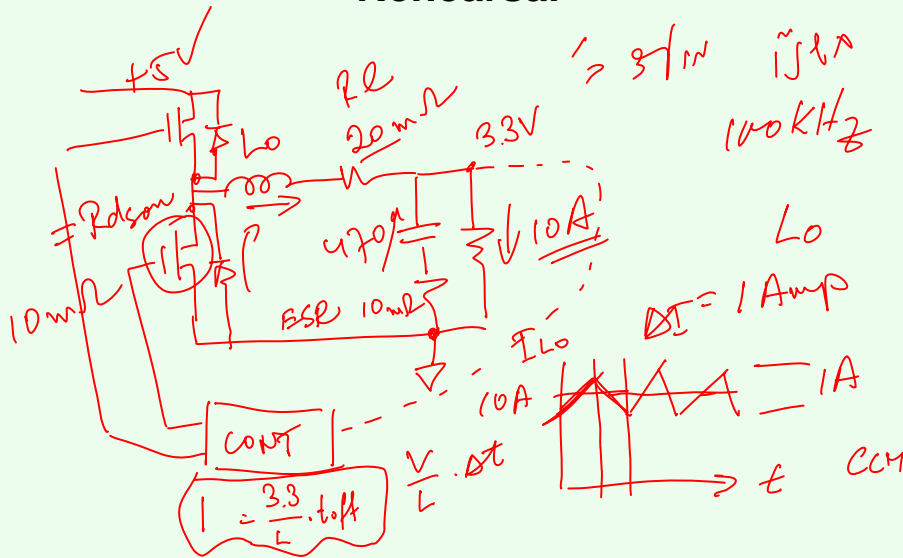 +5
Rl
20mΩ
3.3V
100KHz
Lo
Rdson
10mΩ
470µ
10A
ESR 10mΩ
Lo
ΔI = 1 Amp
ILo
10A
1A
CONT
V/L . Δt
t
CCM
1 = 3.3/L . toff